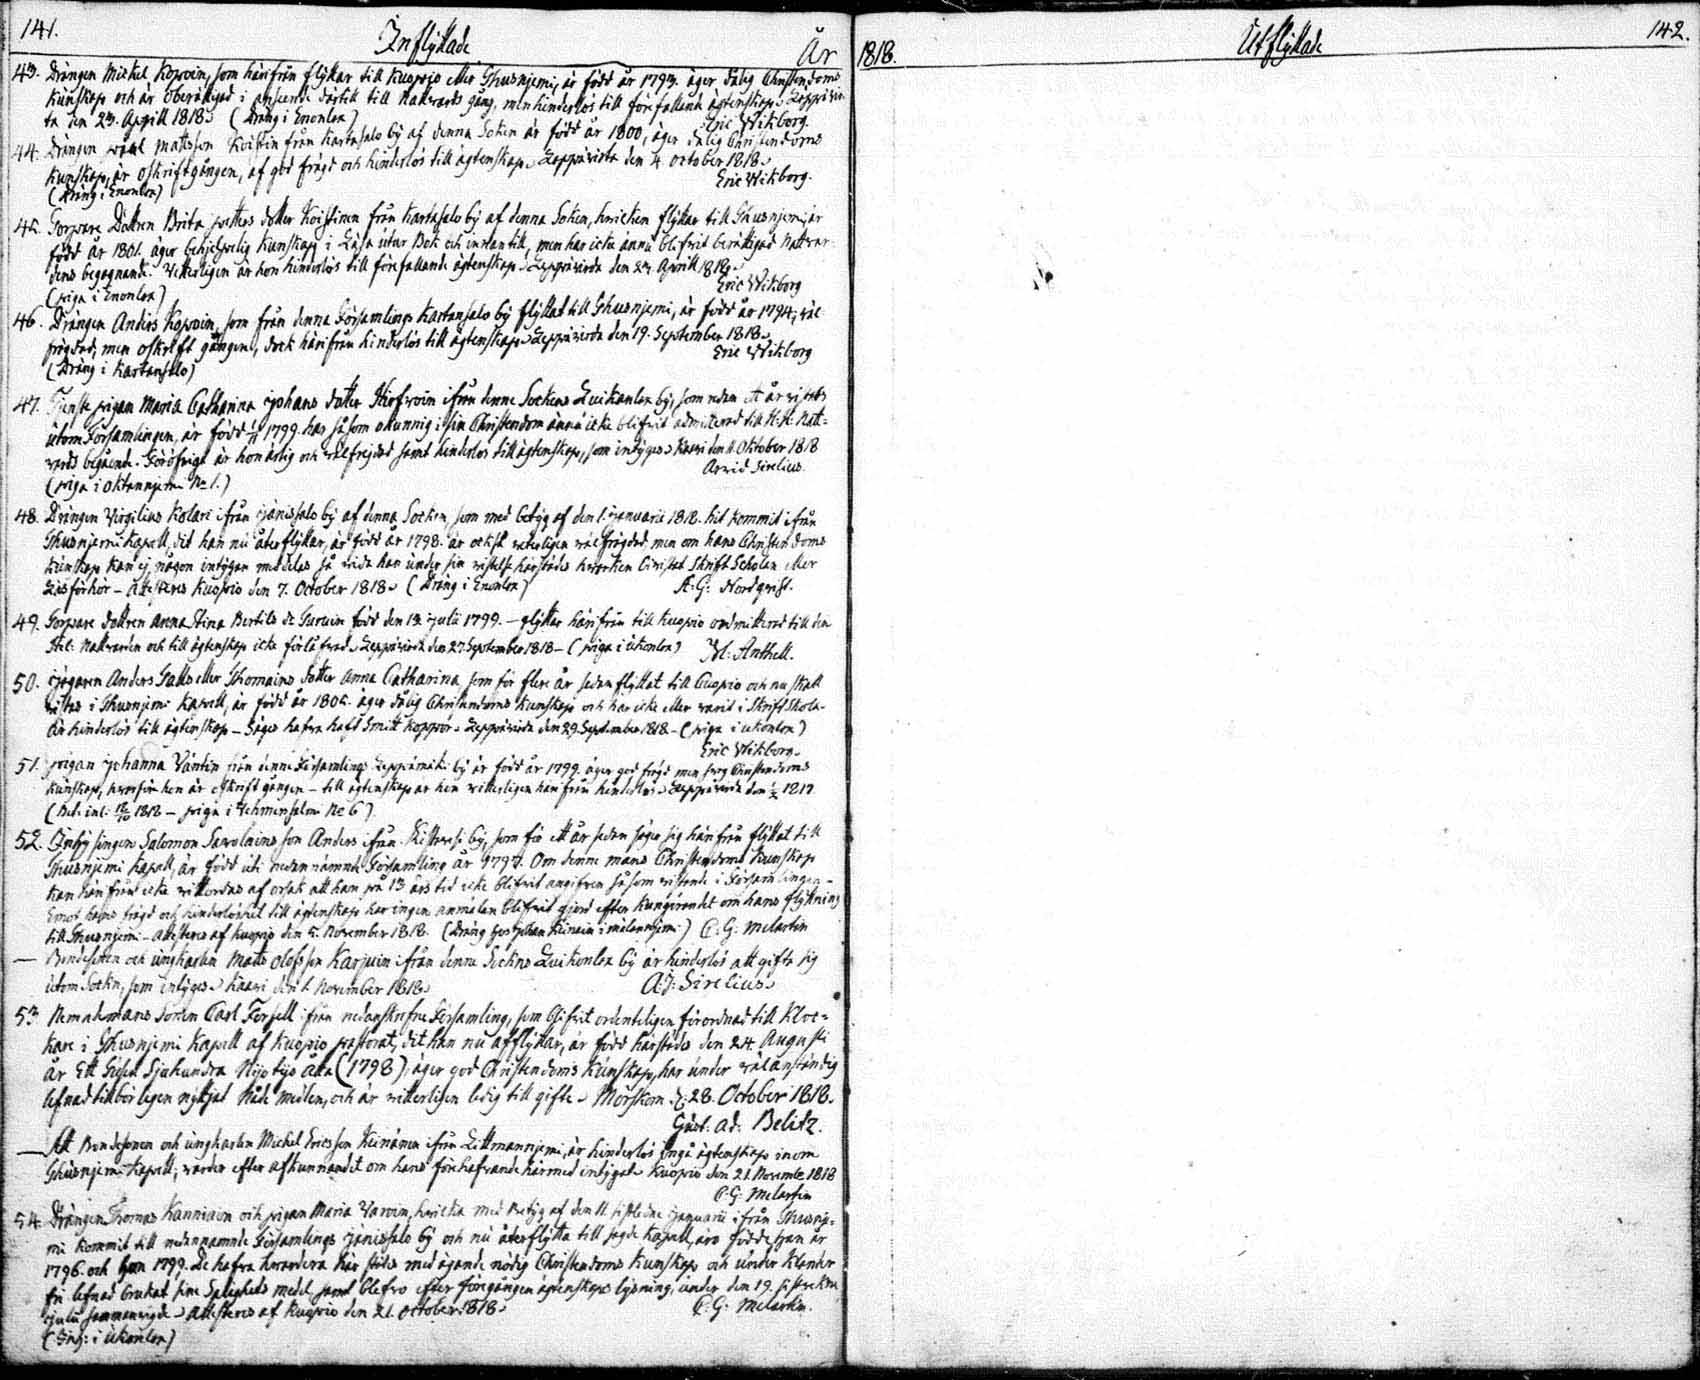 141.
Inflyttade
År
43. Drängen Michel Kopoin, som härifrån flyttar till Kuopio eller Thusnjemi, är född år 1793. äger dålig Christendoms
kunskap och är oberättigad i anseende dertill till Nattvards gång, men hinderlös till förefallande ägtenskap. Leppävir-
ta den 23. Aprill 1818. (Dräng i Enonlax) Eric Wikborg.
44. Drängen Påhl Mattsson Koistin från Kartasalo by af denna Soken är född år 1800, äger dålig Christendoms
kunskap, är oskriftgången, af god frägd och hinderlös till ägtenskap. Leppävirta den 4. october 1818.
(Dräng i Enonlax) Eric Wikborg.
45. Torpare Dottren Brita Petters dotter Koistinen från Kartasalo by af denna Soken, hvilcken flyttar till Thusnjemi, är
född år 1801. äger behjelpelig kunskap i Läsa utur Bok och innantill, men har icke ännu blifvit berättigad Nattvar-
dens begagnande. Vitterligen är hon hinderlös till förefallande ägtenskap. Leppävirda den 27. Aprill 1818.
(piga i Enonlax) Eric Wikborg
46. Drängen Anders Kopoin, som från denna Församlings Kartansalo by flyttat till Thusnjemi, är född år 1794, väl
frägdad, men oskrift gången, dock härifrån hinderlös till ägtenskap. Leppävirda den 19. September 1818.
(Dräng i Kartansalo) Eric Wikborg
47. Tjenste pigan Maria Catharina Johans dotter Hirfvoin ifrån denne Sockens Luikonlax by, som nedan ett år vistats
utom Församlingen, är född 1/11 1799. har såsom okunnig i sin Christendom ännu icke blifvit admitterad till H. H. Natt-
vards begående. Föröfrigt är hon ärlig och välfrejdad samt hinderlös till ägtenskap, som intygas. Kaavi den 11 Oktober 1818
(piga i Oktannjemi No 1.) Arvid Sirelius.
48. Drängen Virgilius Kolari ifrån Jänissalo by af denna Socken, som med betyg af den 1. Januarii 1818. hit kommit ifrån
Thusnjemi Kapell, dit han nu återflyttar, är född år 1798. är ock så veterligen välfrägdad, men om hans Christendoms
kunskap kan ej någon intygan meddelas så vida han under sin vistelse härstädes hvarken bivistat Skrift Scholan eller
Läsförhör – attesteras Kuopio den 7. October 1818. (Dräng i Enonlax) A. G: Nordqvist.
49. Torpare dottren Anna Stina Bertils dr Turuin född den 13 Julii 1799. – flyttar härifrån till Kuopio oadmitterad till den
Hel: Nattvarden och till ägtenskap icke förlåfvad. Leppävirda den 27. September 1818 – (piga i Ukonlax) M: Anthell.
50. Jägaren Anders Galts eller Thomains dotter Anna Catharina, som för flere år sedan flyttat till Cuopio och nu skall
vistas i Thusnjemi Kapell, är född år 1805. äger dålig Christendoms kunskap och har icke eller varit i Skrift Skola.
Är hinderlös till ägtenskap – Säges hafva haft Smitt koppor. Leppävirda den 29. September 1818 – (piga i Ukonlax)
Eric Wikborg.
51. pigan Johanna Väntin från denne Församlings Leppämäki by är född år 1799. äger god frägd men svag Christendoms
kunskap, hvarföre hon är oskrift gången – till ägtenskap är hon vitterligen härifrån hinderlös. Leppävirda den 1818
(Bet: inl: 18/10 1818 – piga i Vehmersalmi No 6)
52. Inhysingen Salomon Savolains son Anders ifrån Kettvesi by, som för ett år sedan säger sig härifrån flyttat till
Thusnjemi Kapell, är född uti nedan nämnde Församling år 1797. Om denne mans Christendoms kunskap
kan härifrån icke vittordas af orsak att han på 13 års tid icke blifvit angifven såsom vistande i Församlingen –
Emot hans frägd och hinderlöshet till ägtenskap har ingen anmälan blifvit gjord efter kungörandet om hans flyttning
till Thusnjemi – attesteras af Kuopio den 5. November 1818. (Dräng hos Johan Keinain i Mälannjemi) C. G: Melartin
— Bondesonen och ungkarlen Matts Olofsson Karjuin ifrån denna Sockns Luikonlax by är hinderlös att gifta sig
utom Sockn, som intygas. Kaavi den 1. November 1818. A: J: Sirelius.
53. Nimndemans Sonen Carl Forsell ifrån nedanskrefne Församling, som blifvit ordentligen förordnad till Kloc-
kare i Thusnjemi Kapell af Kuopio pastorat, dit han nu afflyttar, är född härstädes den 24. Augusti
år Ett tusen Sjuhundra Nijotijo åtta (1798); äger god Christendoms kunskap, har under väl anständig
lefnad tillbörligen nyttjat Nåde medlen, och är vitterligen ledig till gifte. Mörskom d: 28. October 1818.
Gust. ad: Belitz.
— Att Bondesonen och ungkarlen Michel Ericsson Keinänen ifrån Littmannjemi, är hinderlös ingå ägtenskap inom
Thusnjemi Kapell, varder efter afkunnandet om hans förehafvande härmed intygat. Kuopio den 21. Novembr 1818
C. G: Melartin
54. Drängen Thomas Kanniain och pigan Maria Varoin, hvilcka med Betyg af den 11 sistledne Januarii ifrån Thusnje-
mi kommit till nedannamnde Församlings Jänissalo by och nu återflytta till sagde Kapell, äro födde, han år
1796. och hon 1799. De hafva hvardera här städes med ägande nödig Christendoms kunskap och under klander
fri lefnad brukat sine Salighets medel samt blefvo efter föregången ägtenskaps lysning, under den 19. sistvekne
Julii sammanvigde. attesteras af Kuopio den 21. October 1818. C. G: Melartin.
(Inh: i Ukonlax)
1818.
Utflyttade
142.